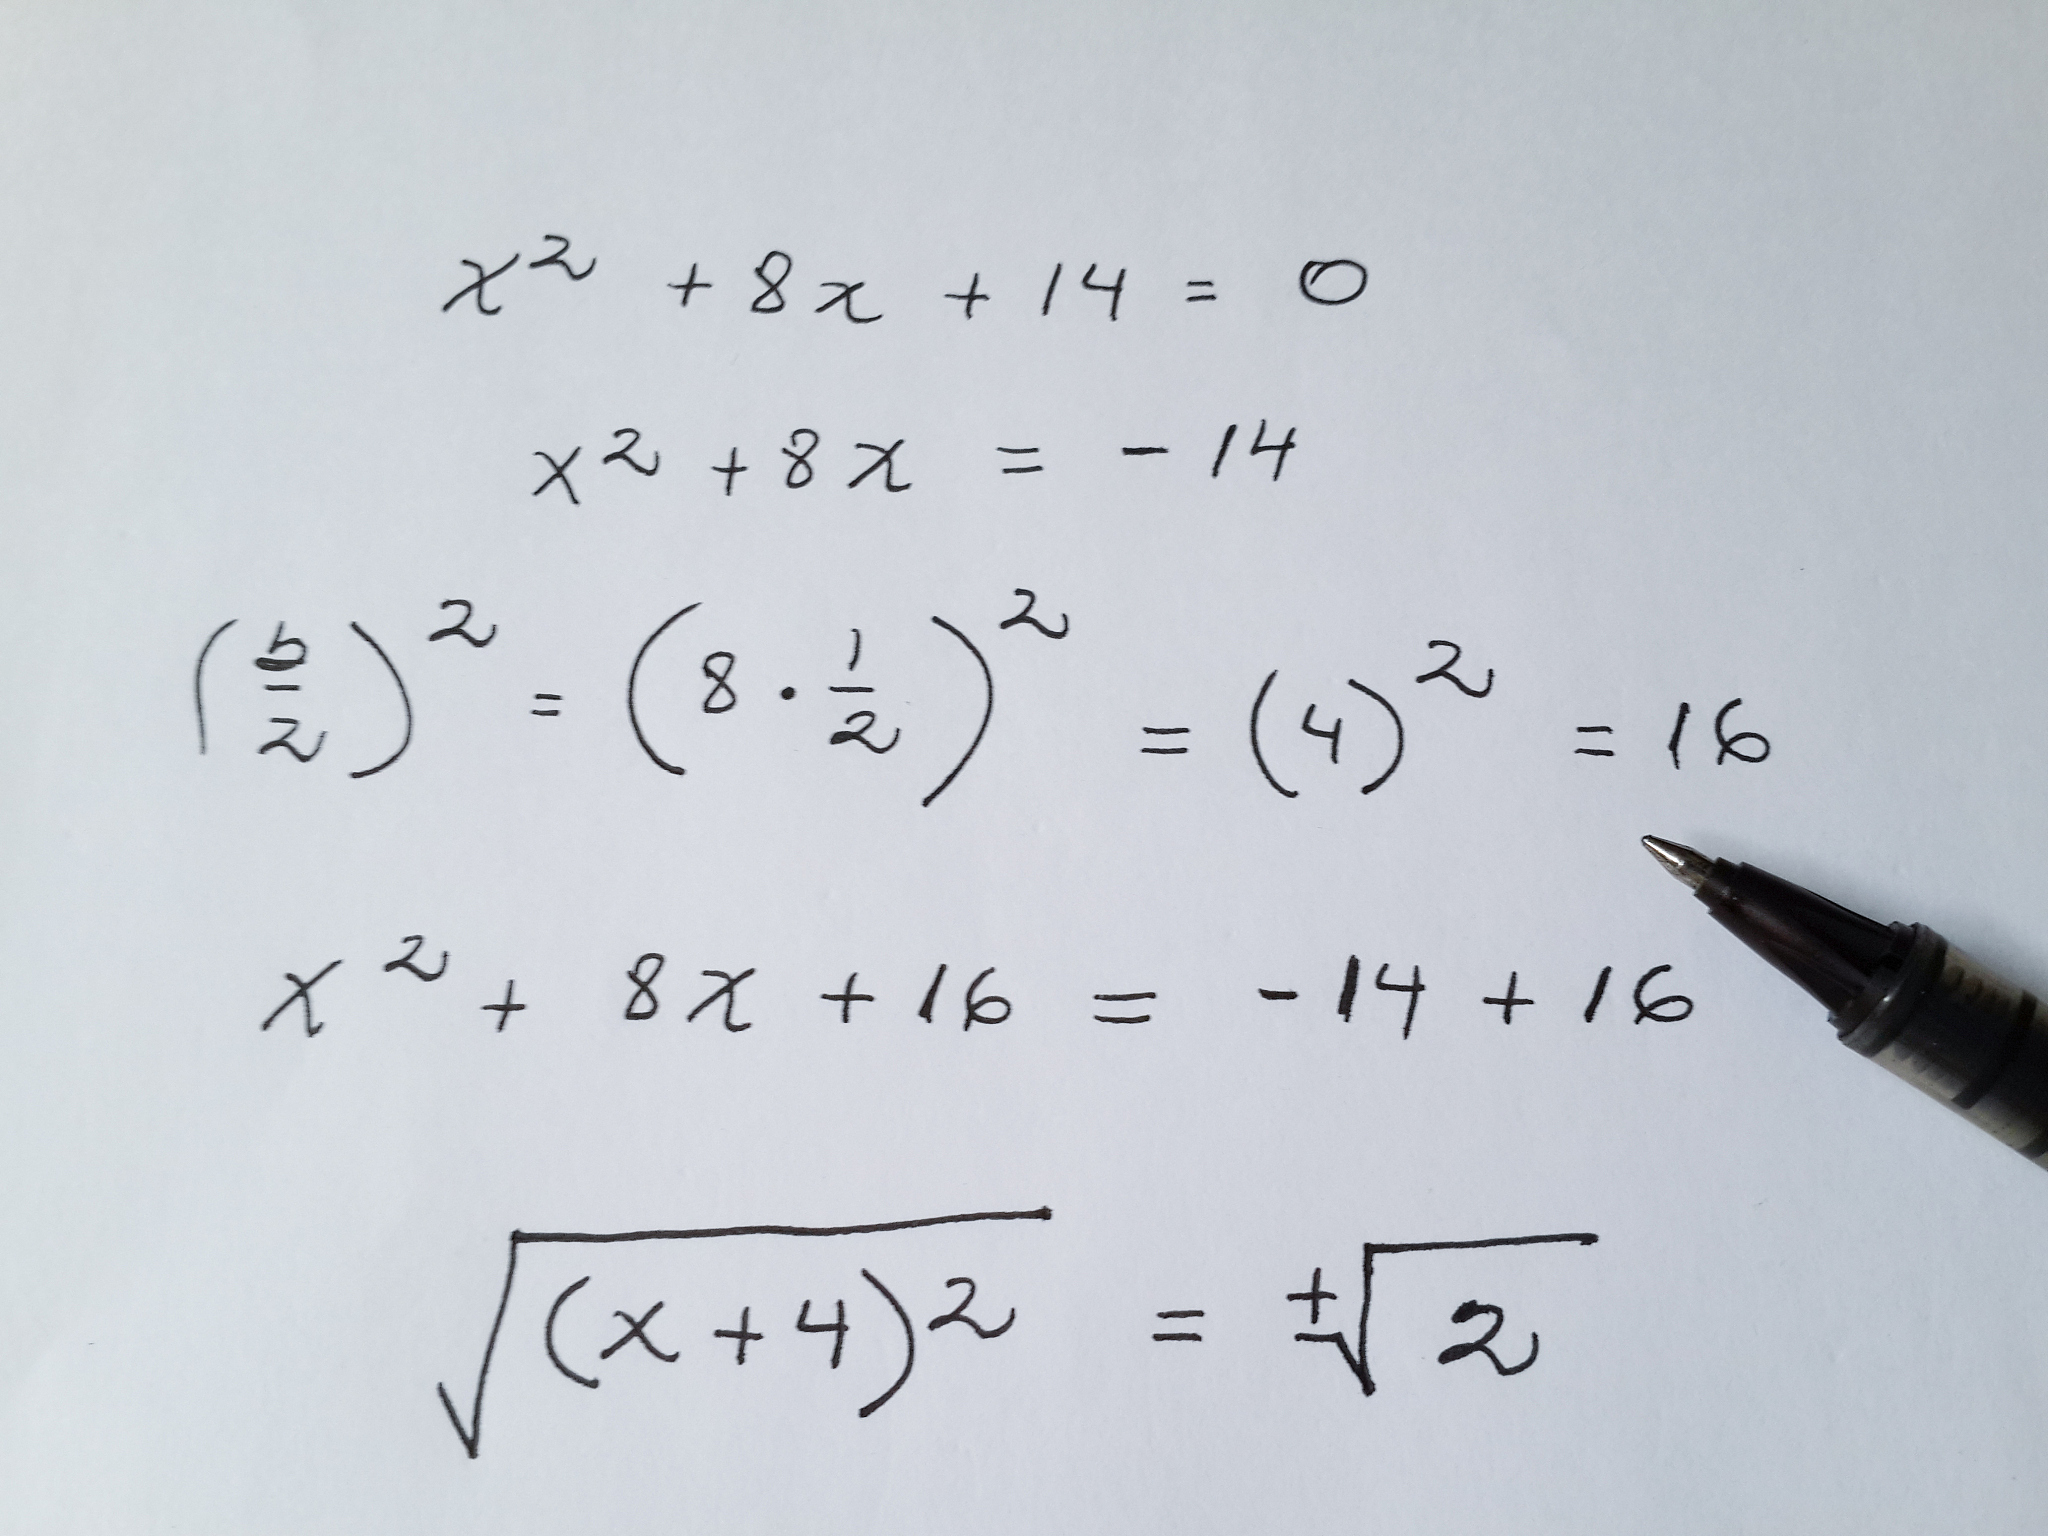 x² + 8x + 14 = 0
x² + 8x = - 14
(b/2)² = (8 · 1/2)² = (4)² = 16
x² + 8x + 16 = - 14 + 16
√(x + 4)² = ±√2